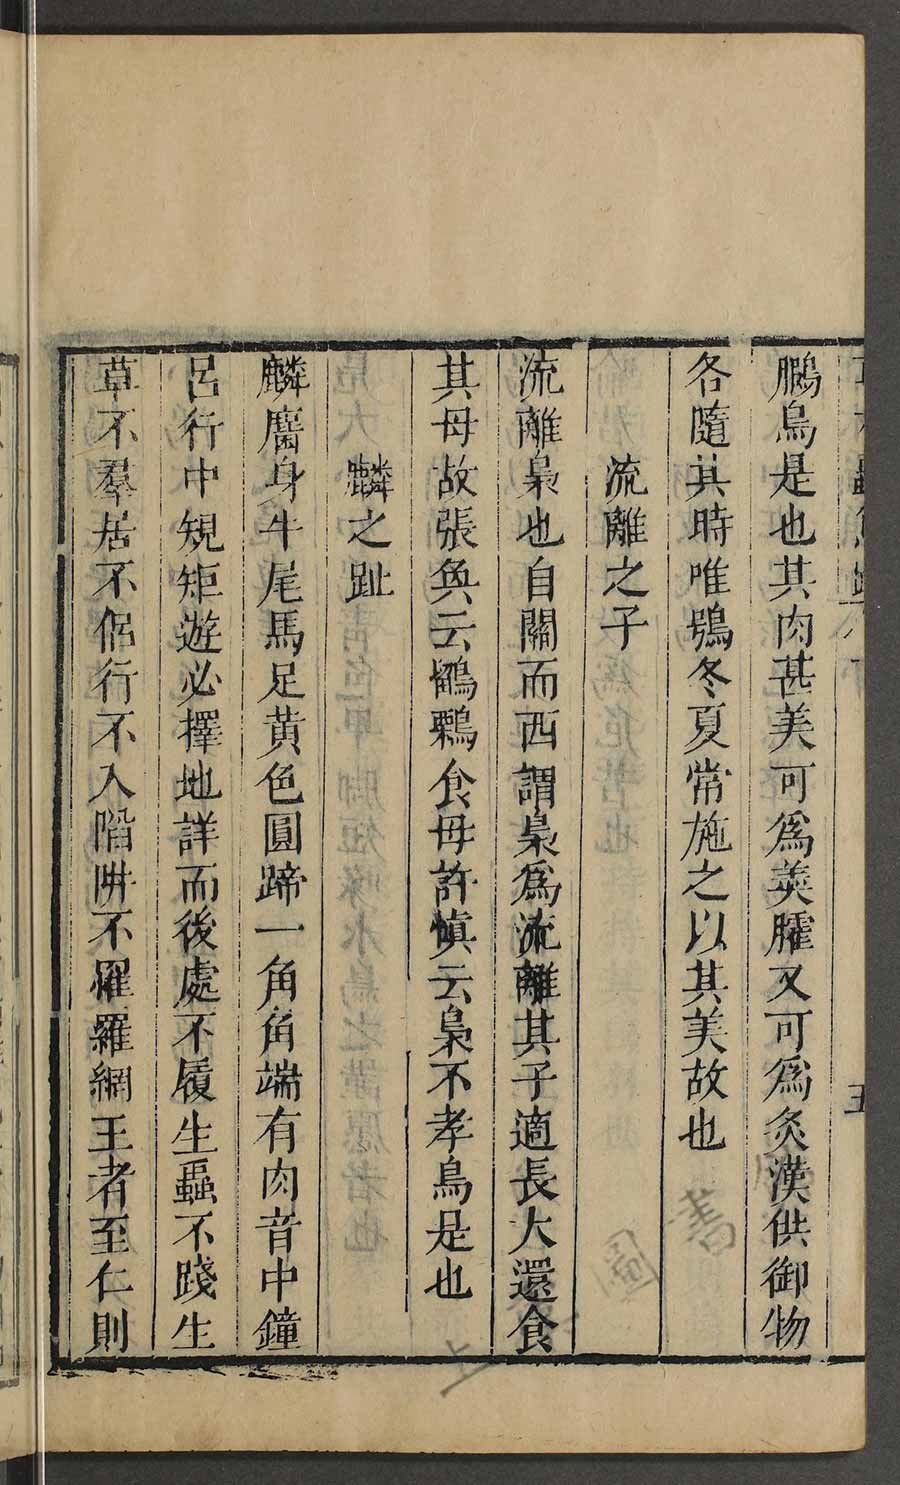 鵩鳥是也其肉甚美可爲羮臛又可爲炙漢供御物
各隨其時唯鴞冬夏常施之以其美故也
流離之子
流離梟也自關而西謂梟爲流離其子適長大還食
其母故張奐云鶹鷅食母許愼云梟不孝鳥是也
麟之趾
麟麕身牛尾馬足黄色圓蹄一角角端有肉音中鐘
呂行中規矩遊必擇地詳而後處不履生蟲不踐生
草不羣居不侶行不入陷阱不罹羅網王者至仁則